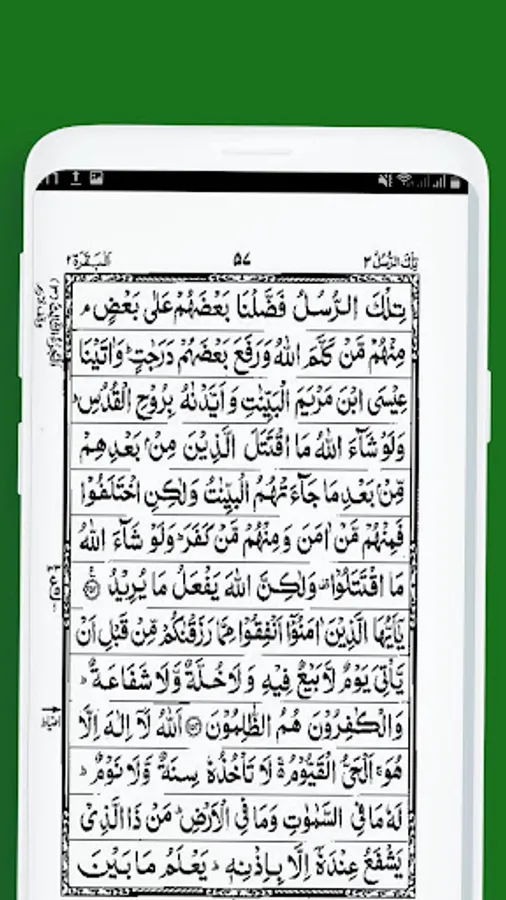 تِلْكَ الرُّسُلُ ٣ ٥٧ الْبَقَرَة ٢
تِلْكَ الرُّسُلُ فَضَّلْنَا بَعْضَهُمْ عَلٰى بَعْضٍ ۘ
مِنْهُمْ مَّنْ كَلَّمَ اللّٰهُ وَرَفَعَ بَعْضَهُمْ دَرَجٰتٍ ؕ وَاٰتَيْنَا
عِيْسَى ابْنَ مَرْيَمَ الْبَيِّنٰتِ وَاَيَّدْنٰهُ بِرُوْحِ الْقُدُسِ ؕ
وَلَوْ شَآءَ اللّٰهُ مَا اقْتَتَلَ الَّذِيْنَ مِنْۢ بَعْدِهِمْ
مِّنْۢ بَعْدِ مَا جَآءَتْهُمُ الْبَيِّنٰتُ وَلٰكِنِ اخْتَلَفُوْا
فَمِنْهُمْ مَّنْ اٰمَنَ وَمِنْهُمْ مَّنْ كَفَرَ ؕ وَلَوْ شَآءَ اللّٰهُ
مَا اقْتَتَلُوْا ۫ وَلٰكِنَّ اللّٰهَ يَفْعَلُ مَا يُرِيْدُ ۝
يٰۤاَيُّهَا الَّذِيْنَ اٰمَنُوْۤا اَنْفِقُوْا مِمَّا رَزَقْنٰكُمْ مِّنْ قَبْلِ اَنْ
يَّاْتِيَ يَوْمٌ لَّا بَيْعٌ فِيْهِ وَلَا خُلَّةٌ وَّلَا شَفَاعَةٌ ؕ
وَالْكٰفِرُوْنَ هُمُ الظّٰلِمُوْنَ ۝ اَللّٰهُ لَاۤ اِلٰهَ اِلَّا
هُوَ ۚ اَلْحَيُّ الْقَيُّوْمُ ۚ۬ لَا تَاْخُذُهٗ سِنَةٌ وَّلَا نَوْمٌ ؕ
لَهٗ مَا فِي السَّمٰوٰتِ وَمَا فِي الْاَرْضِ ؕ مَنْ ذَا الَّذِيْ
يَشْفَعُ عِنْدَهٗۤ اِلَّا بِاِذْنِهٖ ؕ يَعْلَمُ مَا بَيْنَ